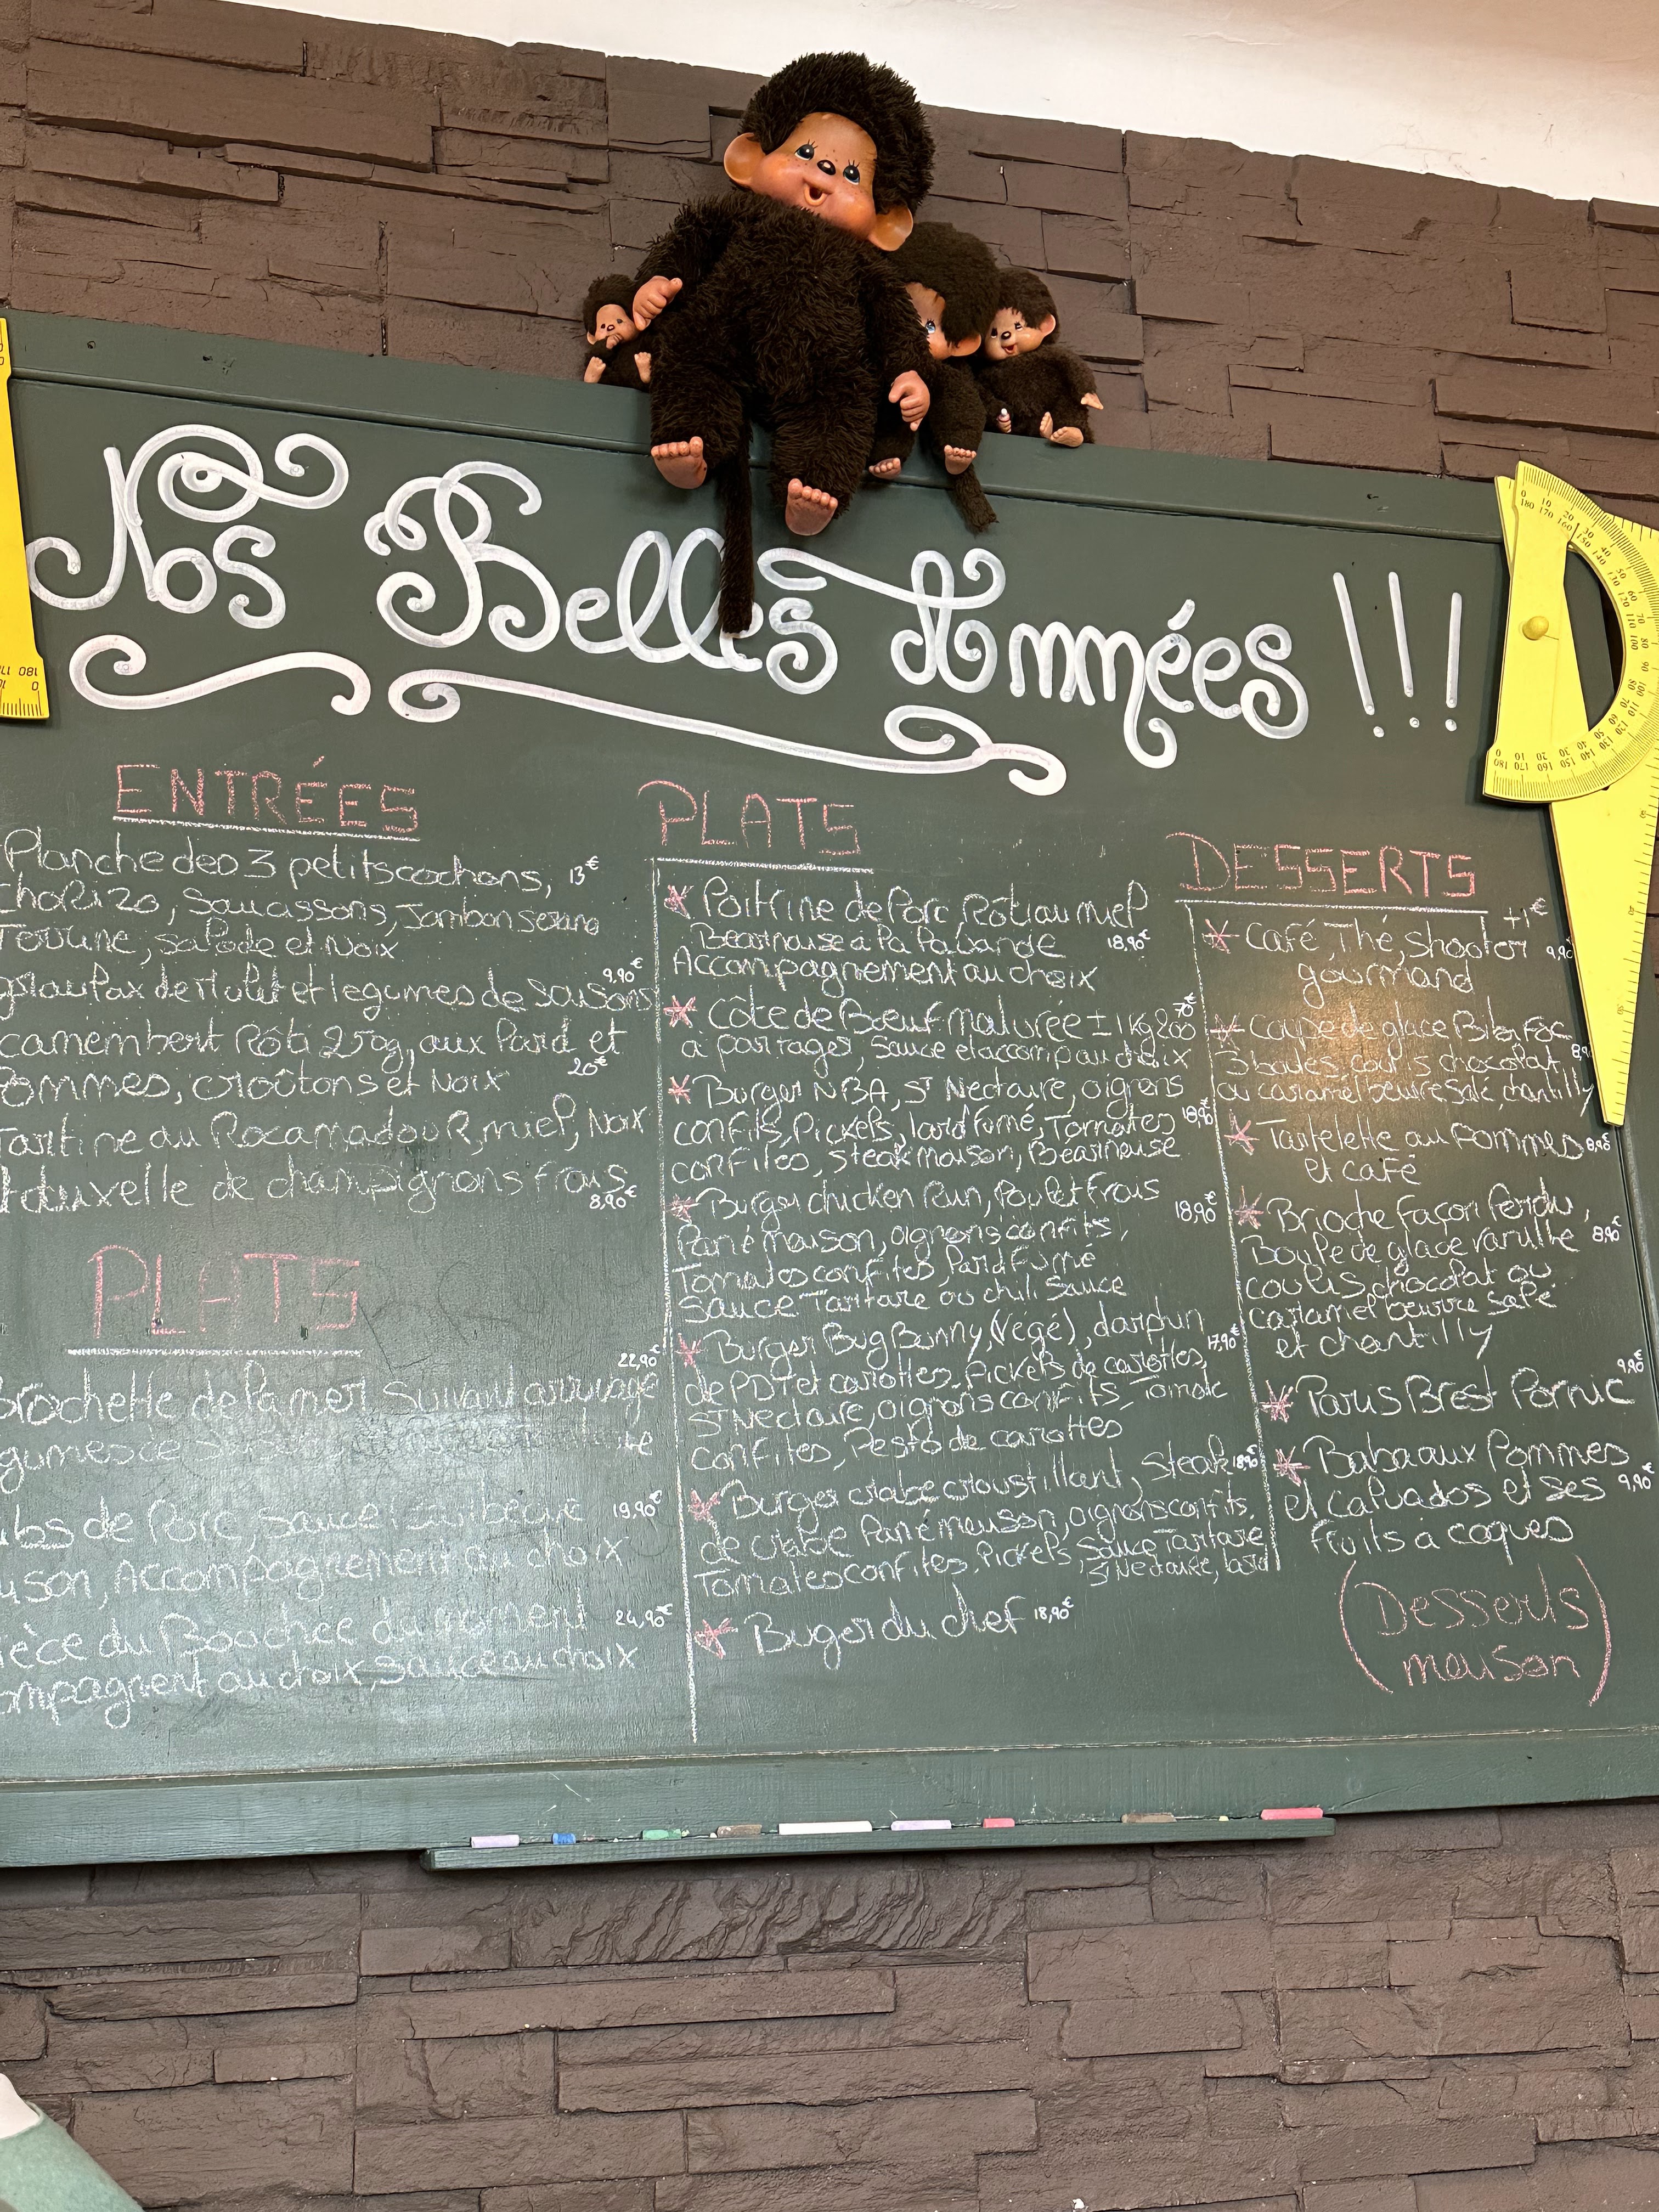 Nos Belles Années !!!
ENTRÉES
Planche deo 3 petits cochons, 13€
chorizo, Saucassons, Jambon serano
Terrine, salade et Noix
9,90€
et legumes de saisons
camembert Rôti 250g, aux Lard et
Pommes, croûtons et Noix 20€
Tartine au Rocamadour, miel, Noix
duxelle de champignons frais
8,90€
PLATS
22,90€
brochette de la mer suivant arrivage
gumes de
ubs de Porc, sauce barbecue 19,90€
uson, Accompagnement au choix
ièce du Bouchee du moment 24,90€
ompagnent au choix, sauce au choix
PLATS
Poitrine de Porc Rôti au miel
Bearnause a la lavande 18,90€
Accompagnement au choix
70€
Côte de Bœuf maturée ± 1Kg200
a partager, sauce et accomp au choix
Burger NBA, St Nectaire, oignons
confits, Pickels, lard fumé, Tomates 18,90€
confites, steak maison, Bearneuse
Burger chicken Run, Poulet frais 18,90€
Pané maison, oignons confits,
Tomates confites, lard Fumé
sauce Tartare ou chili sauce
Burger Bug Bunny, (Végé), darphin 17,90€
de PDT et carottes, Pickels de carottes,
St Nectaire, oignons confits, Tomate
confites, Pesto de carottes
Burger crabe croustillant, steak 18,90€
de crabe Pané meuson, oignons confits,
Tomates confites, Pickels, Sauce Tartare
St Nectaire, lard
Buger du chef 18,90€
DESSERTS
+1€
Café, Thé, shooter 9,90
gourmand
Coupe de glace
3 boules, coulis chocolat 8,9
ou caramel beurre salé, chantilly
Tartelette au Pommes 8,90€
et café
Brioche Façon Perdu,
Boule de glace vanille 8,90€
coulis chocolat ou
caramel beurre salé
et chantilly
9,90€
Paris Brest Pornic
Baba aux Pommes
et calvados et ses 9,90€
fruits à coques
(Desserts
meuson)